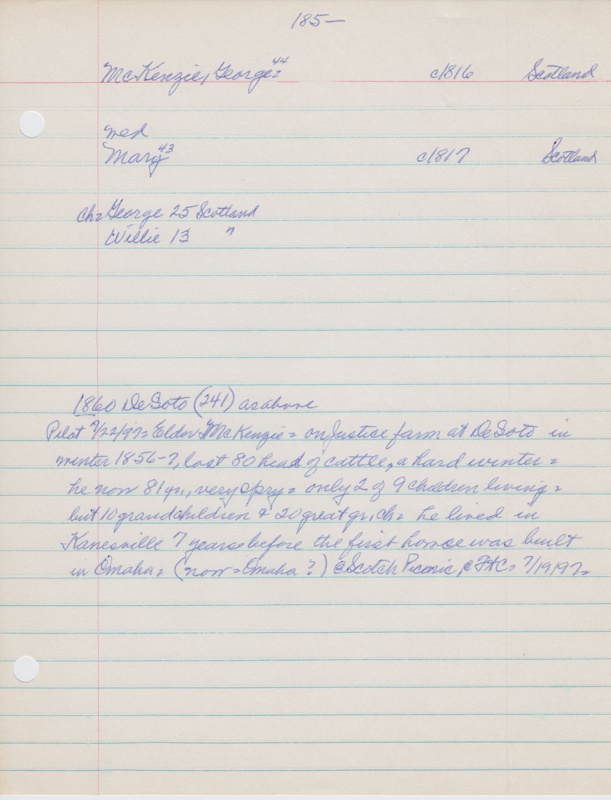 185—
McKenzie, George= 44 c1816 Scotland
med
Mary 43 c1817 Scotland
ch= George 25 Scotland
Willie 13 "
1860 DeSoto (241) as above
Pilot 7/22/97= Elder McKenzie= on Justice farm at DeSoto in
winter 1856-7, lost 80 head of cattle, a hard winter=
he now 81 yr., very spry= only 2 of 9 children living=
but 10 grandchildren & 20 great gr. ch= he lived in
Kanesville 7 years before the first house was built
in Omaha= (now=Omaha?) @ Scotch Picnic, @ FtC= 7/19/97=